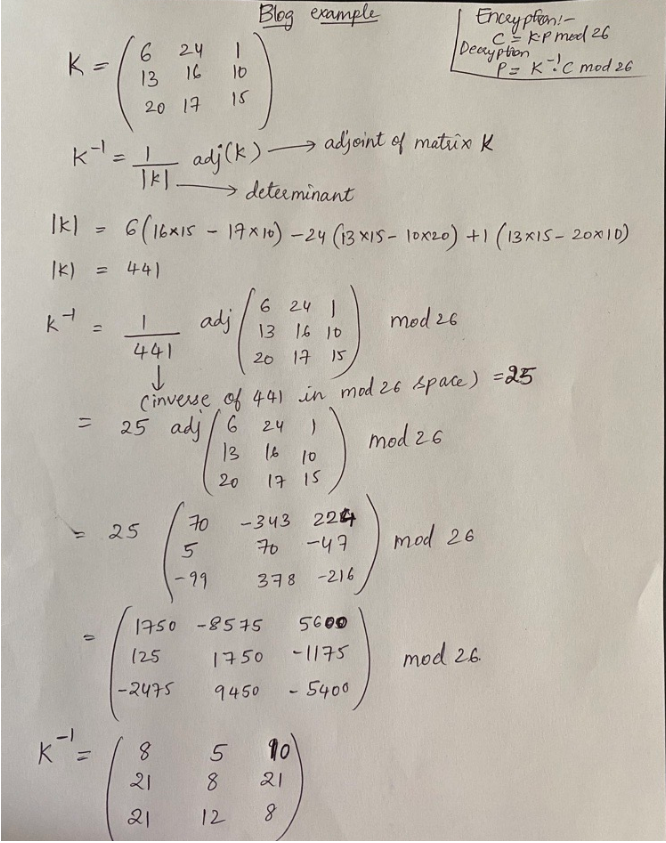 Blog example
Encryption:-
C = K.P mod 26
Decryption
P = K⁻¹.C mod 26
K = ( 6 24 1
13 16 10
20 17 15 )
K⁻¹ = 1/|K| adj(K) → adjoint of matrix K
→ determinant
|K| = 6(16×15 - 17×10) - 24(13×15 - 10×20) + 1(13×15 - 20×10)
|K| = 441
K⁻¹ = 1/441 adj ( 6 24 1
13 16 10
20 17 15 ) mod 26
↓
(inverse of 441 in mod 26 space) = 25
= 25 adj ( 6 24 1
13 16 10
20 17 15 ) mod 26
= 25 ( 70 -343 224
5 70 -47
-99 378 -216 ) mod 26
= ( 1750 -8575 5600
125 1750 -1175
-2475 9450 -5400 ) mod 26.
K⁻¹ = ( 8 5 10
21 8 21
21 12 8 )